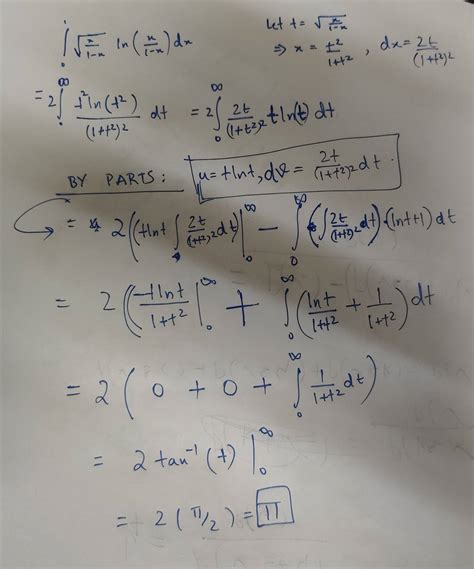 ∫₀¹ √(x/(1-x)) ln(x/(1-x)) dx
let t = √(x/(1-x))
⇒ x = t²/(1+t²) , dx = 2t/(1+t²)²
= 2 ∫₀^∞ t² ln(t²)/(1+t²)² dt = 2 ∫₀^∞ 2t/(1+t²)² t ln(t) dt
BY PARTS : u = t ln t, dv = 2t/(1+t²)² dt.
= 2 ( (t ln t ∫ 2t/(1+t²)² dt) |₀^∞ − ∫₀^∞ (∫ 2t/(1+t²)² dt) · (ln t + 1) dt
= 2 ( −t ln t/(1+t²) |₀^∞ + ∫₀^∞ ( ln t/(1+t²) + 1/(1+t²) ) dt
= 2 ( 0 + 0 + ∫₀^∞ 1/(1+t²) dt )
= 2 tan⁻¹ (t) |₀^∞
= 2 (π/2) = π